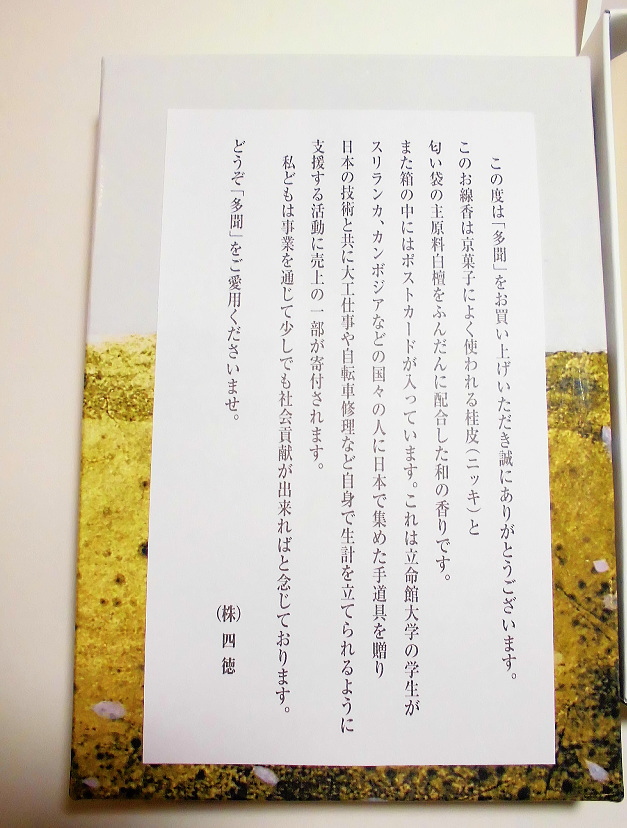 この度は「多聞」をお買い上げいただき誠にありがとうございます。
このお線香は京菓子によく使われる桂皮（ニッキ）と
匂い袋の主原料白檀をふんだんに配合した和の香りです。
また箱の中にはポストカードが入っています。これは立命館大学の学生が
スリランカ、カンボジアなどの国々の人に日本で集めた手道具を贈り
日本の技術と共に大工仕事や自転車修理など自身で生計を立てられるように
支援する活動に売上の一部が寄付されます。
私どもは事業を通じて少しでも社会貢献が出来ればと念じております。
どうぞ「多聞」をご愛用くださいませ。
（株）四徳